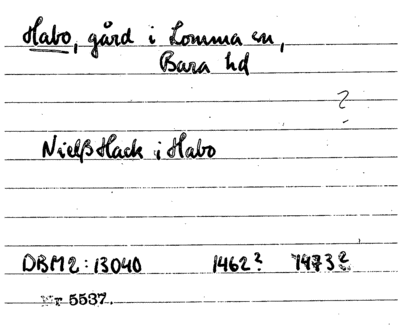 Habo, gård i Lomma sn,
Bara hd
?
Nielß Hack i Habo
DBM2:13040 1462? 1473?
Nr 5537.